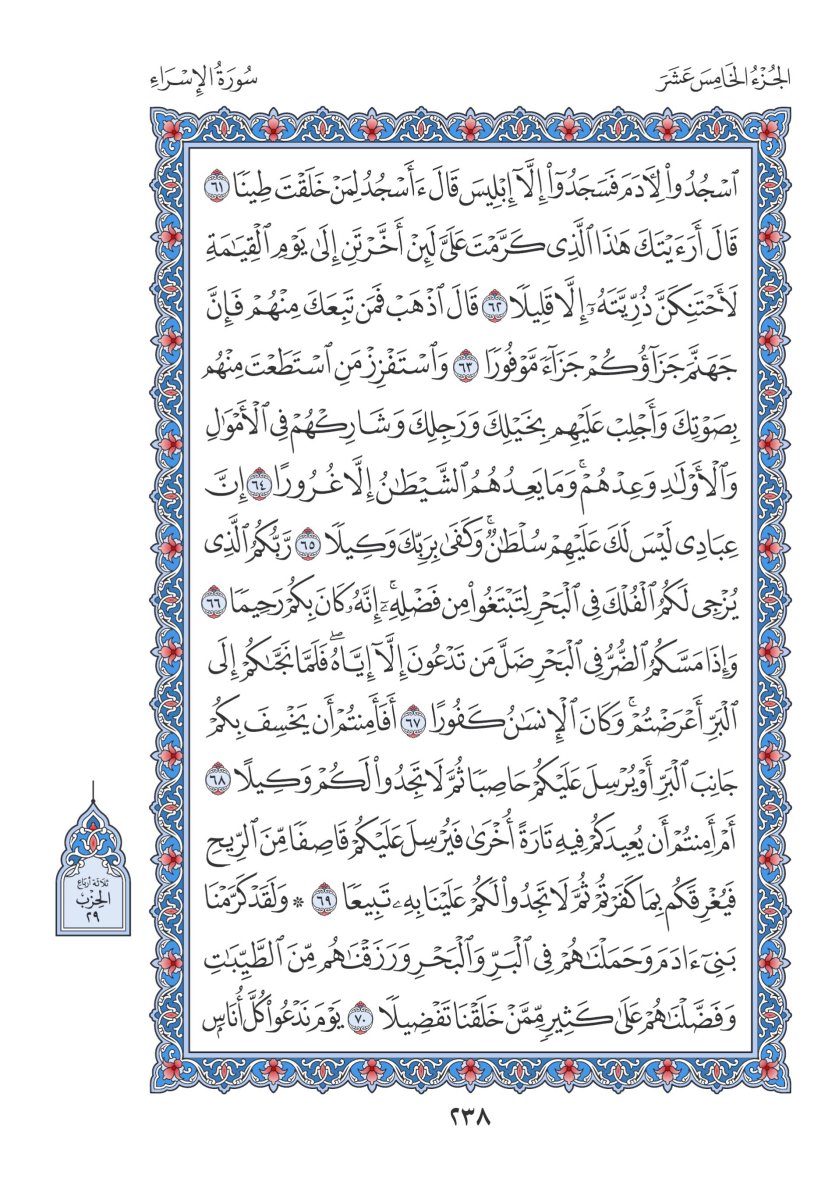 الجُزْءُ الخَامِسَ عَشَرَ
سُورَةُ الإِسْرَاءِ
ٱسْجُدُوا۟ لِأٓدَمَ فَسَجَدُوٓا۟ إِلَّآ إِبْلِيسَ قَالَ ءَأَسْجُدُ لِمَنْ خَلَقْتَ طِينًا ٦١
قَالَ أَرَءَيْتَكَ هَٰذَا ٱلَّذِى كَرَّمْتَ عَلَىَّ لَئِنْ أَخَّرْتَنِ إِلَىٰ يَوْمِ ٱلْقِيَٰمَةِ
لَأَحْتَنِكَنَّ ذُرِّيَّتَهُۥٓ إِلَّا قَلِيلًا ٦٢ قَالَ ٱذْهَبْ فَمَن تَبِعَكَ مِنْهُمْ فَإِنَّ
جَهَنَّمَ جَزَآؤُكُمْ جَزَآءً مَّوْفُورًا ٦٣ وَٱسْتَفْزِزْ مَنِ ٱسْتَطَعْتَ مِنْهُم
بِصَوْتِكَ وَأَجْلِبْ عَلَيْهِم بِخَيْلِكَ وَرَجِلِكَ وَشَارِكْهُمْ فِى ٱلْأَمْوَٰلِ
وَٱلْأَوْلَٰدِ وَعِدْهُمْ ۚ وَمَا يَعِدُهُمُ ٱلشَّيْطَٰنُ إِلَّا غُرُورًا ٦٤ إِنَّ
عِبَادِى لَيْسَ لَكَ عَلَيْهِمْ سُلْطَٰنٌ ۚ وَكَفَىٰ بِرَبِّكَ وَكِيلًا ٦٥ رَّبُّكُمُ ٱلَّذِى
يُزْجِى لَكُمُ ٱلْفُلْكَ فِى ٱلْبَحْرِ لِتَبْتَغُوا۟ مِن فَضْلِهِۦٓ ۚ إِنَّهُۥ كَانَ بِكُمْ رَحِيمًا ٦٦
وَإِذَا مَسَّكُمُ ٱلضُّرُّ فِى ٱلْبَحْرِ ضَلَّ مَن تَدْعُونَ إِلَّآ إِيَّاهُ ۖ فَلَمَّا نَجَّىٰكُمْ إِلَى
ٱلْبَرِّ أَعْرَضْتُمْ ۚ وَكَانَ ٱلْإِنسَٰنُ كَفُورًا ٦٧ أَفَأَمِنتُمْ أَن يَخْسِفَ بِكُمْ
جَانِبَ ٱلْبَرِّ أَوْ يُرْسِلَ عَلَيْكُمْ حَاصِبًا ثُمَّ لَا تَجِدُوا۟ لَكُمْ وَكِيلًا ٦٨
أَمْ أَمِنتُمْ أَن يُعِيدَكُمْ فِيهِ تَارَةً أُخْرَىٰ فَيُرْسِلَ عَلَيْكُمْ قَاصِفًا مِّنَ ٱلرِّيحِ
فَيُغْرِقَكُم بِمَا كَفَرْتُمْ ثُمَّ لَا تَجِدُوا۟ لَكُمْ عَلَيْنَا بِهِۦ تَبِيعًا ٦٩ * وَلَقَدْ كَرَّمْنَا
بَنِىٓ ءَادَمَ وَحَمَلْنَٰهُمْ فِى ٱلْبَرِّ وَٱلْبَحْرِ وَرَزَقْنَٰهُم مِّنَ ٱلطَّيِّبَٰتِ
وَفَضَّلْنَٰهُمْ عَلَىٰ كَثِيرٍ مِّمَّنْ خَلَقْنَا تَفْضِيلًا ٧٠ يَوْمَ نَدْعُوا۟ كُلَّ أُنَاسٍۭ
ثلاثة أرباع
الحِزْبُ
٢٩
٢٣٨